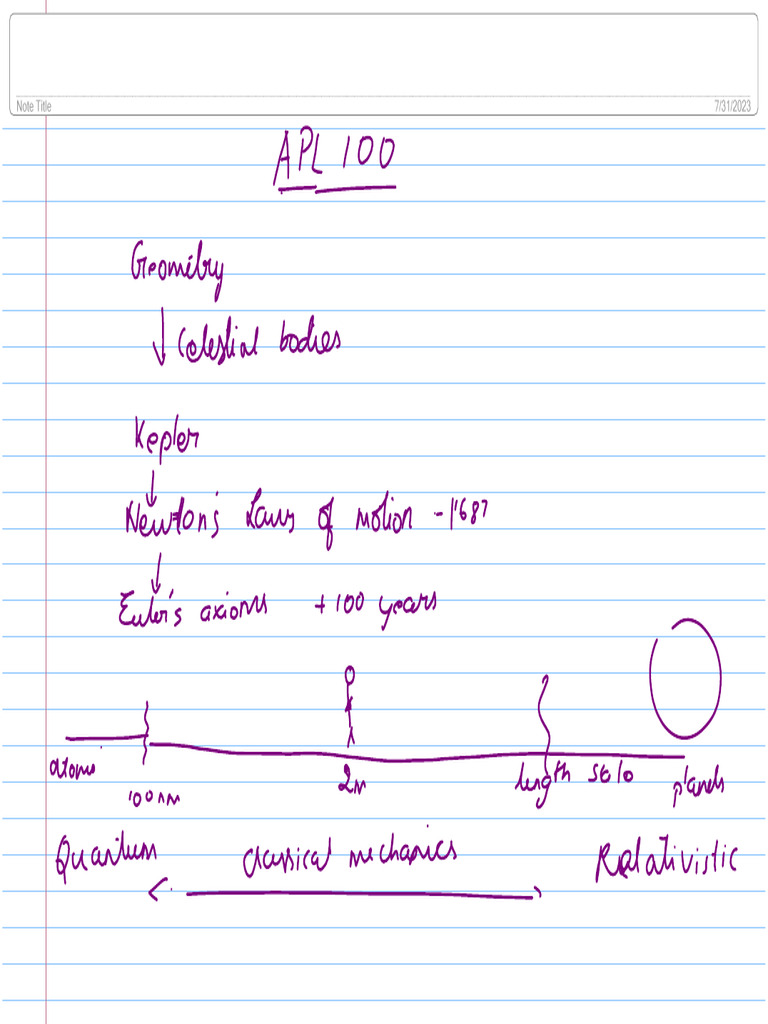 Note Title
7/31/2023
APL 100
Geometry
Celestial bodies
Kepler
Newton's Laws of motion - 1687
Euler's axioms + 100 years
atomic 100 nm 2m length scale planets
Quantum Classical mechanics Relativistic